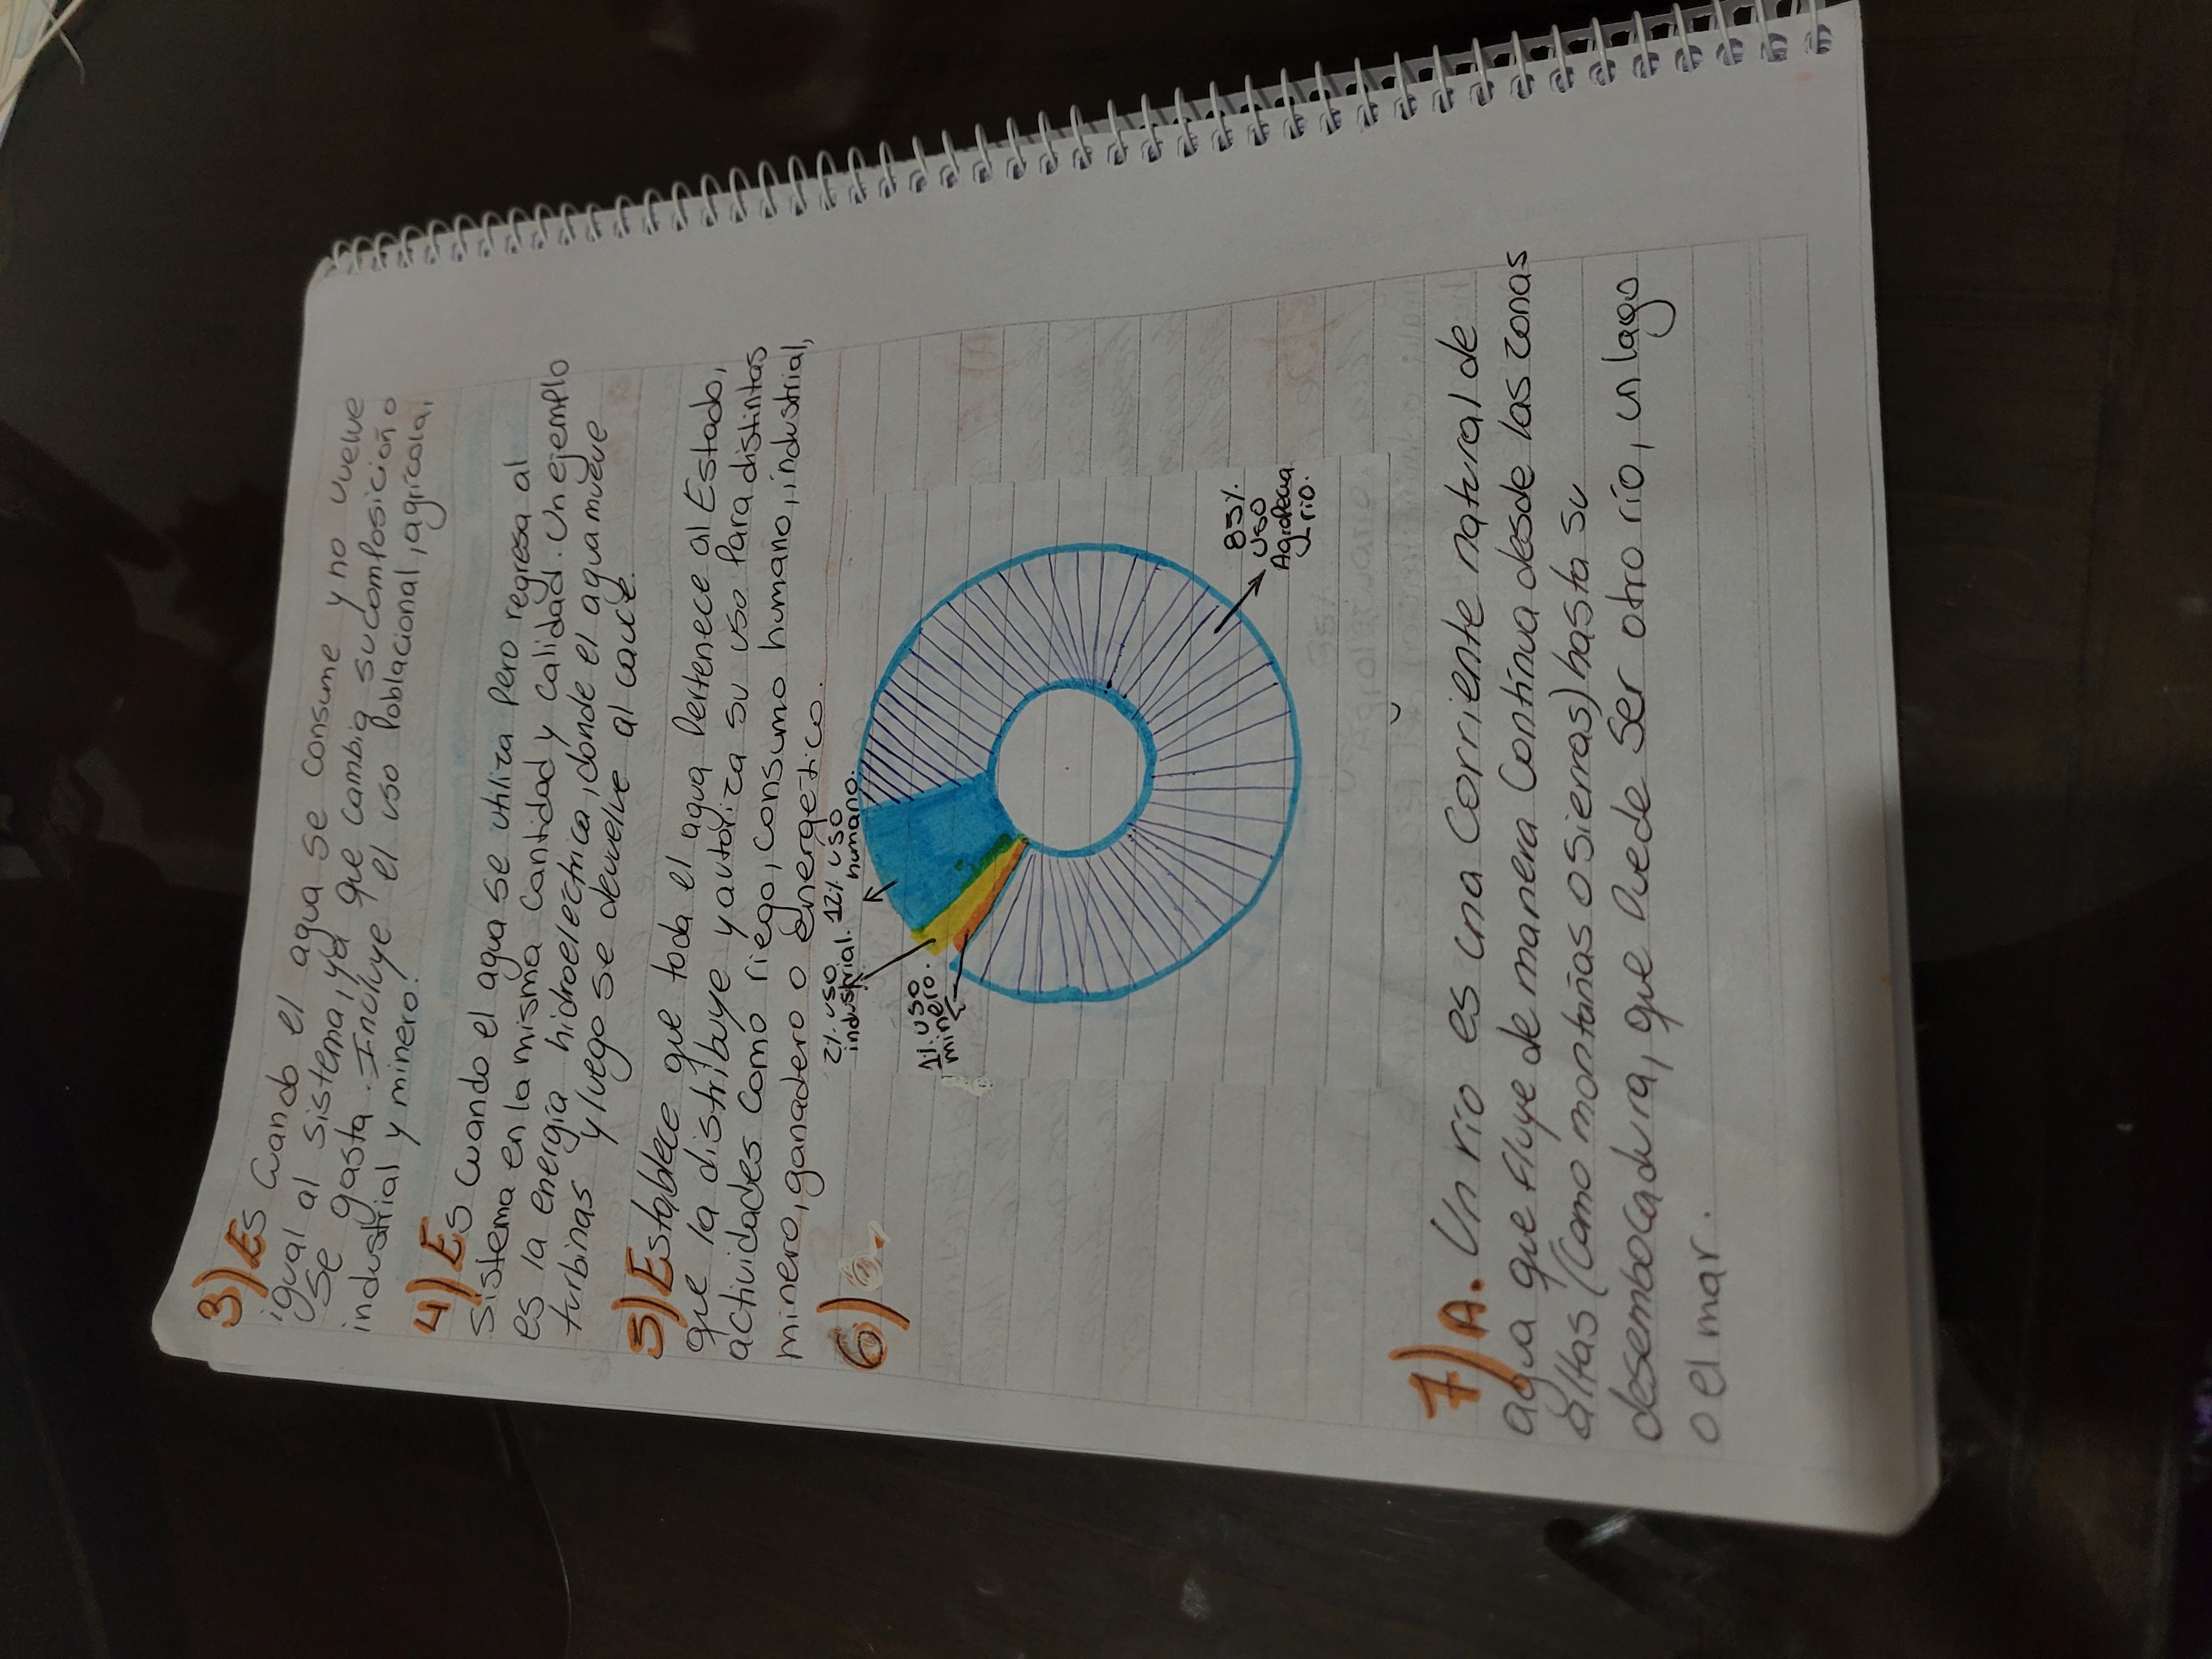 3) Es cuando el agua se consume y no vuelve
igual al sistema, ya que cambia su composición o
se gasta. Incluye el uso poblacional, agrícola,
industrial y minero.
4) Es cuando el agua se utiliza pero regresa al
sistema en la misma cantidad y calidad. Un ejemplo
es la energía hidroeléctrica, donde el agua mueve
turbinas y luego se devuelve al cauce.
5) Establece que toda el agua pertenece al Estado,
que la distribuye y autoriza su uso para distintas
actividades como riego, consumo humano, industrial,
minero, ganadero o energético.
6)
2% uso
industrial.
12% uso
humano.
1% uso
minero.
85%
uso
Agropecua
rio.
7) A. Un río es una corriente natural de
agua que fluye de manera continua desde las zonas
altas (como montañas o sierras) hasta su
desembocadura, que puede ser otro río, un lago
o el mar.